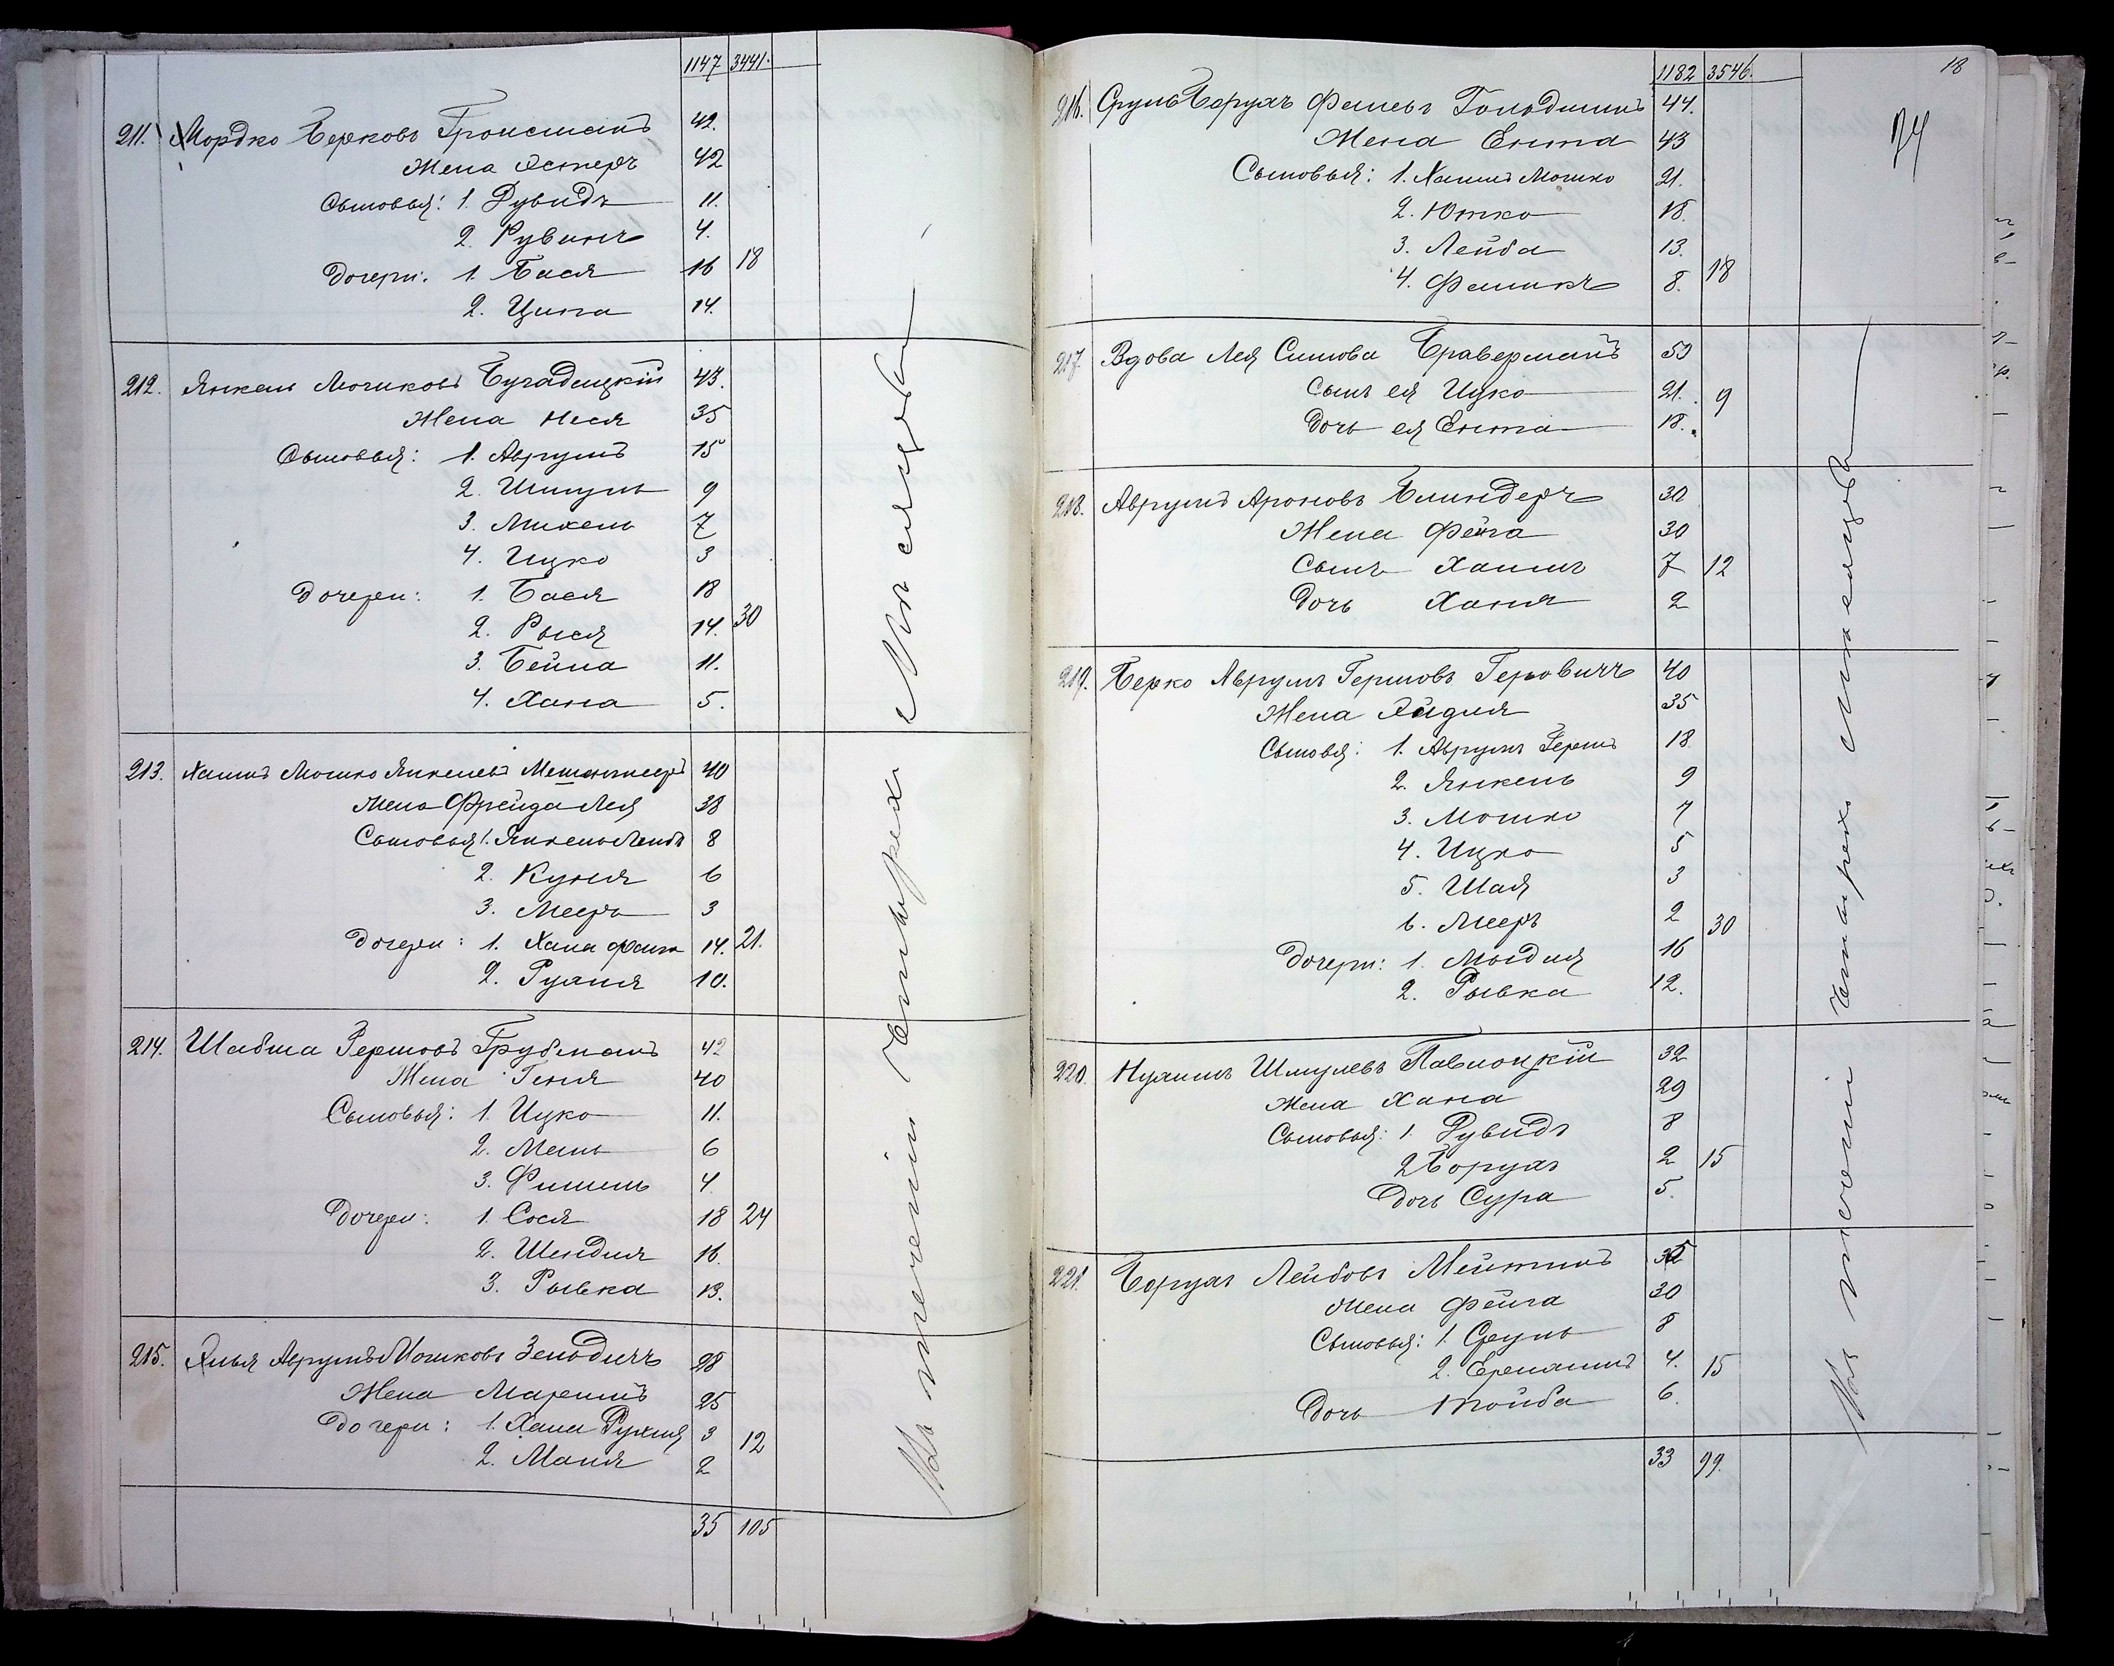 1147 3441.
211. Мордко Берковъ Гройсманъ 42.
Жена Эстеръ 42
Сыновья: 1. Дувидъ 11.
2. Рувинъ 4.
Дочери: 1. Бася 16 18
2. Ципа 14.
212. Янкель Мошковъ Бугадицкій 43.
Жена Неся 35
Сыновья: 1. Аврумъ 15
2. Шмуль 9
3. Михель 7
4. Ицко 3
Дочери: 1. Бася 18
2. Рыся 14. 30
3. Бейла 11.
4. Хана 5.
213. Хаимъ Мошко Янкелевъ 40
Жена Фрейда Лея 38
Сыновья 1. Янкель Лейбъ 8
2. Куня 6
3. Мееръ 3
Дочери: 1. Хана 14. 21.
2. Рухля 10.
214. Шабша Гершовъ Грубманъ 42
Жена Геня 40
Сыновья: 1. Ицко 11.
2. 6
3. Фишель 4
Дочери: 1. Сося 18 24
2. Шендля 16.
3. Рывка 13.
215. Элья Аврумъ Мошковъ Зельдичъ 28
Жена 25
Дочери: 1. Хана Рухля 3 12
2. Маня 2
35 105
Въ теченіи четырехъ мѣсяцовъ
1182 3546. 18
216. Сруль Борухъ Гольдманъ 44.
Жена Ента 43
Сыновья: 1. Хаимъ Мошко 21.
2. Ютко 18.
3. Лейба 13.
4. 8. 18
217. Вдова Лея Симова Браверманъ 59
Сынъ ея Ицко 21. 9
Дочь ея Ента 18.
218. Аврумъ Ароновъ Блиндеръ 30
Жена Фейга 30
Сынъ Хаимъ 7 12
Дочь Ханя 2
219. Берко Аврумъ Гершовъ Герковичъ 40
Жена Эйдля 35
Сыновья: 1. Аврумъ Гершъ 18
2. Янкель 9
3. Мошко 7
4. Ицко 5
5. Шая 3
6. Мееръ 2 30
Дочери: 1. Мындля 16
2. Рывка 12.
220. Нухимъ Шмулевъ Павлоцкій 32
Жена Хана 29
Сыновья: 1. Дувидъ 8
2 Борухъ 2 15
Дочь Сура 5.
221. Борухъ Лейбовъ Мейтинъ
Жена Фейга 30
Сыновья: 1. Сруль 8
2. 4. 15
Дочь Тойба 6.
33 99.
Въ теченіи четырехъ мѣсяцовъ